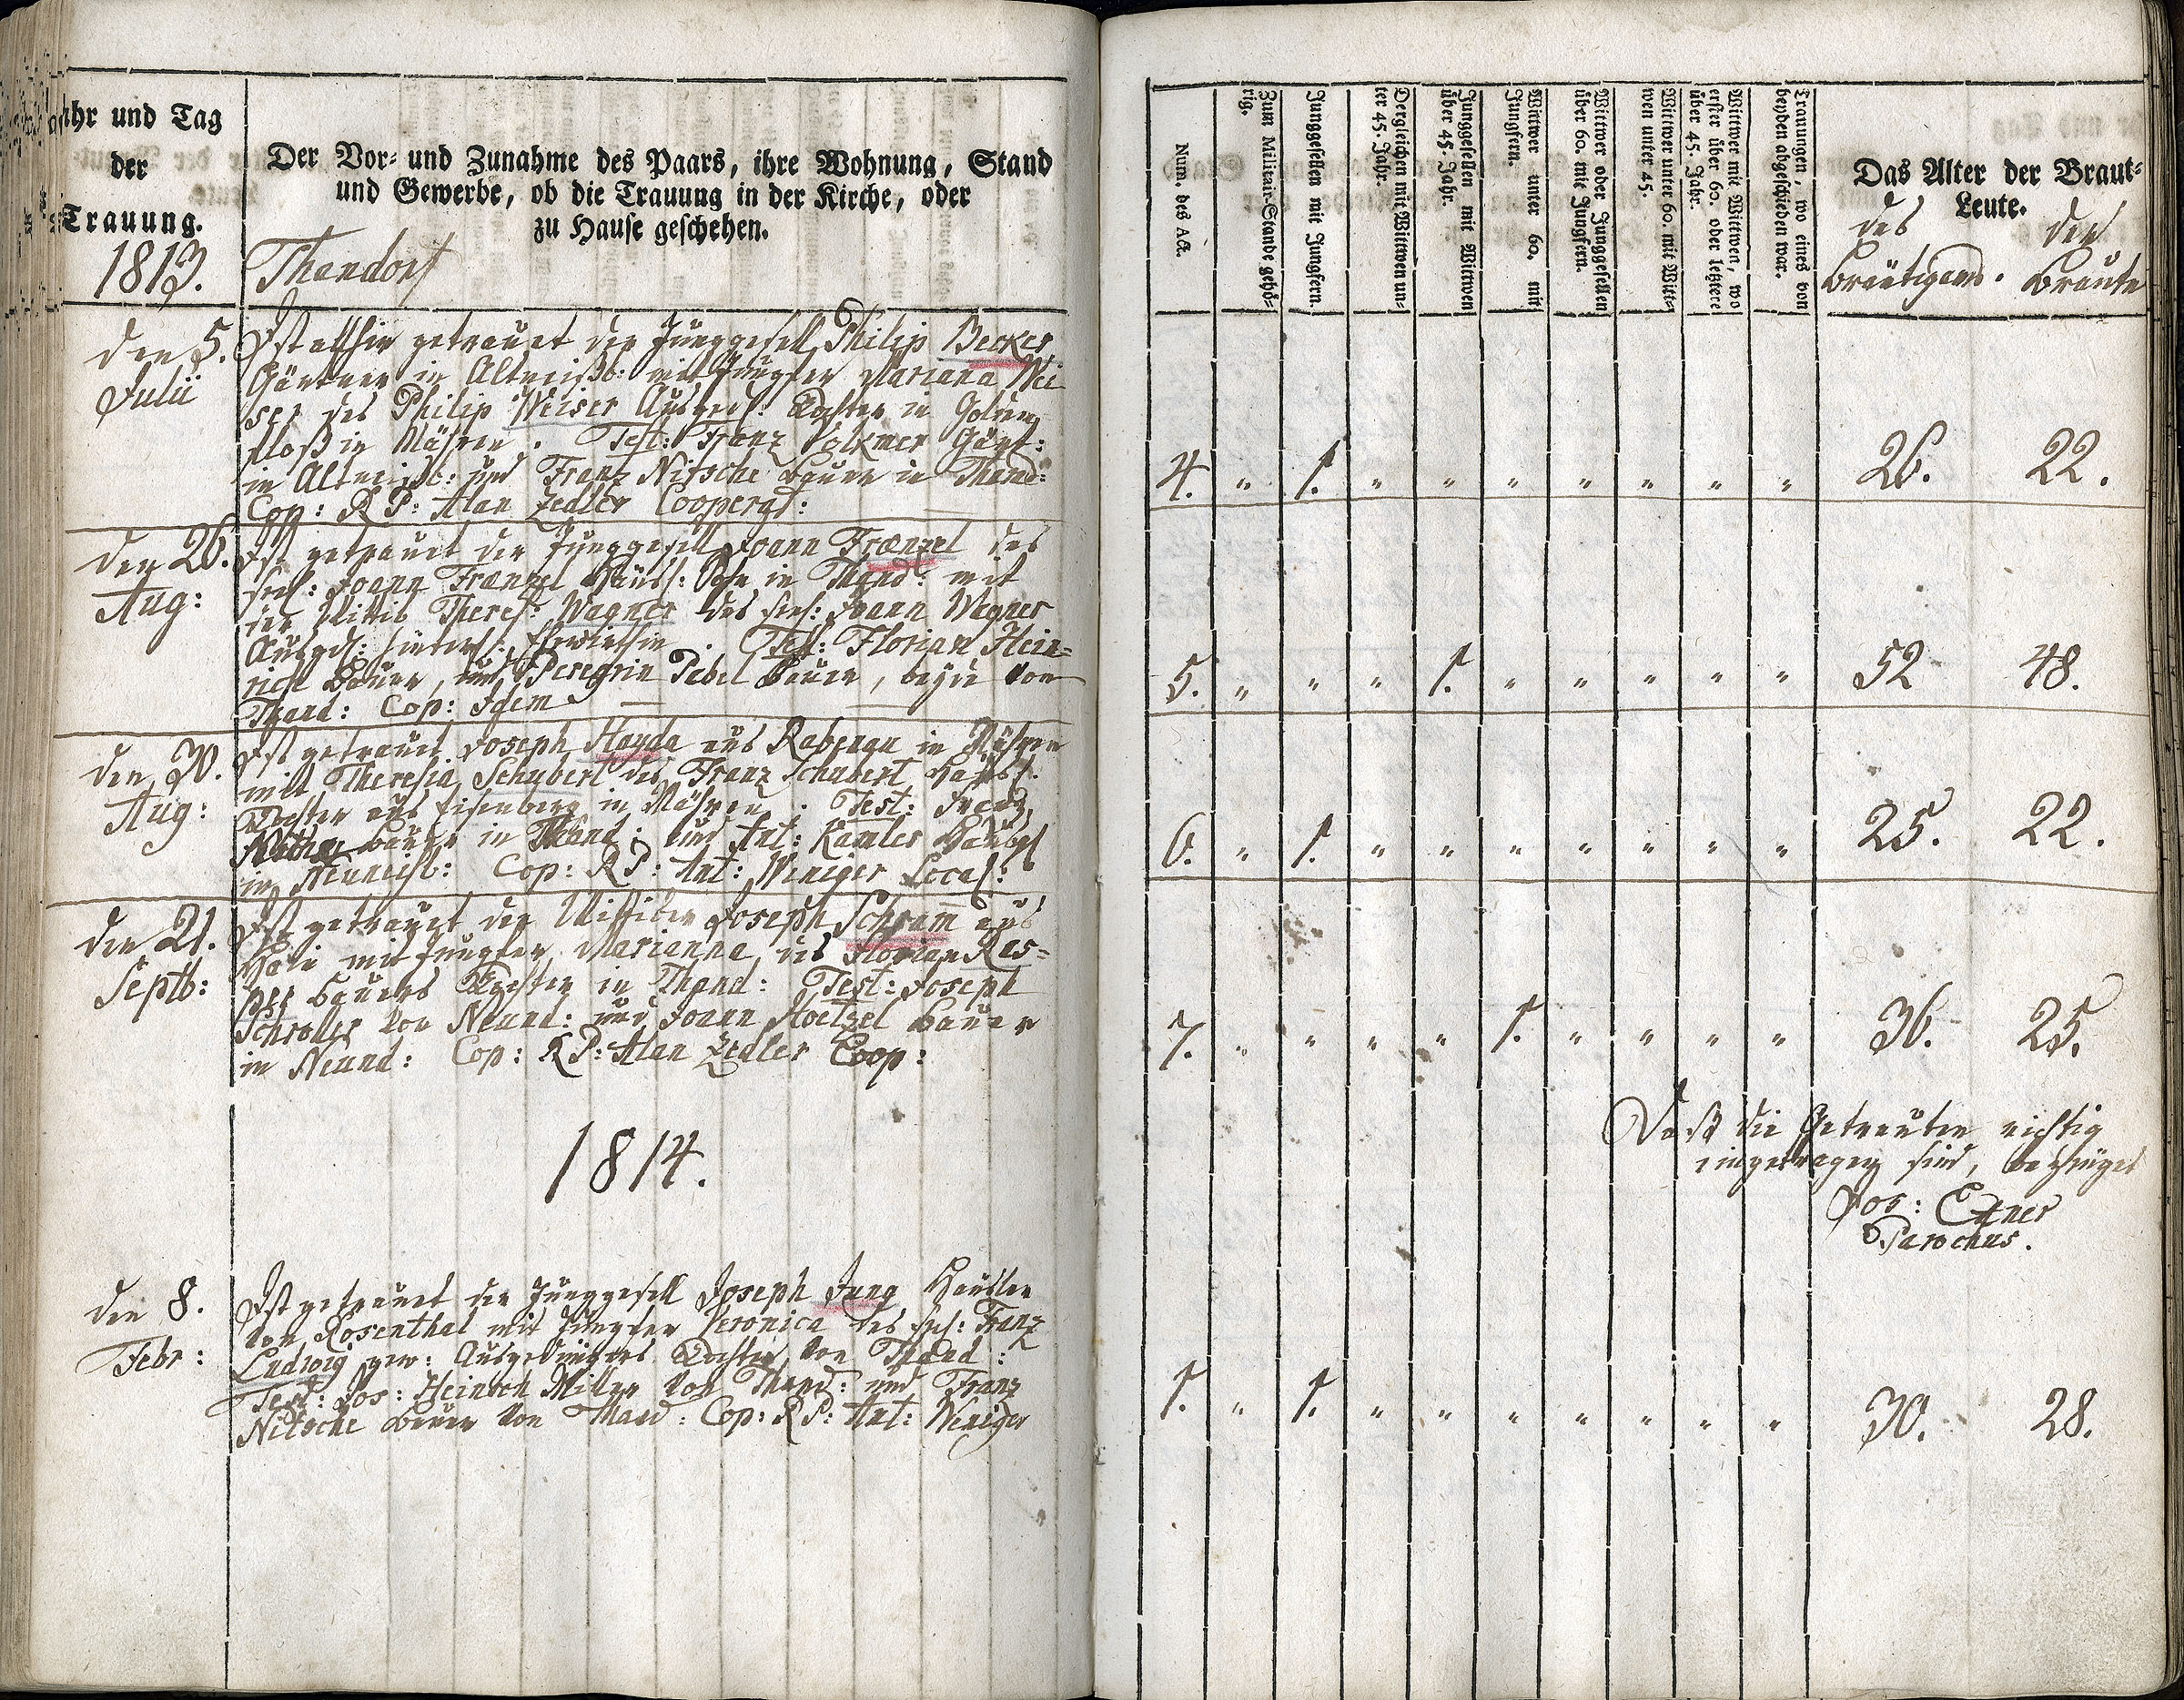 Jahr und Tag
der
Trauung.
Der Vor- und Zunahme des Paars, ihre Wohnung, Stand
und Gewerbe, ob die Trauung in der Kirche, oder
zu Hause geschehen.
1813. Thandorf
den 5.
Julii
Ist allhir getrauet der Junggesell Philip Becker
Gärtner in Altneißb: mit Jungfer Mariana Wei
ser des Philip Weiser Ausged: Tochter in Golden
floß in Mähren. Test: Franz Volkmer Gärt:
in Altneißb: und Franz Nitsche Bauer in Thand:
Cop: R P: Alan Zedler Cooperat:
den 26.
Aug:
Ist getrauet der Junggesell Joann Frænzel des
sel: Joann Frænzel Häusl: Sohn in Thand: mit
der Wittib Theres: Wagner des sel: Joann Wagner
Ausged: hinterl: Ehewirthin. Test: Florian Hein=
rich Bauer, und Peregrin Pebel Bauer, beyde von
Thand: Cop: Idem
den 30.
Aug:
Ist getrauet Joseph Hayda aus Rabenau in Mähren
mitt Theresia Schubert des Franz Schubert Häusl:
Tochter aus Eisenberg in Mähren. Test: Franz
Bauer in Thand: und Ant: Kamler Häusl
in Neuneisb: Cop: R P: Ant: Weniger Local:
den 21.
Septb:
Ist getrauet der Wittiber Joseph Schram aus
Hain mit Jungfer Marianna des Florian Kas=
per Bauers Tochter in Thand: Test: Joseph
Schroller von Neund: und Joann Hoetzel Bauer
in Neund: Cop: R P: Alan Zedler Coop:
1814.
den 8.
Febr:
Ist getrauet der Junggesell Joseph Jung Häusler
von Rosenthal mit Jungfer Veronica des sel: Franz
Ludwig gew: Ausgedingers Tochter von Thand:
Test: Jos: Heinsch Miller von Thand: und Franz
Nitsche Bauer von Thand: Cop: R P: Ant: Weniger
Num. des Act.
Zum Militair-Stande gehö-
rig.
Junggesellen mit Jungfern.
Dergleichen mit Wittwen un-
ter 45. Jahr.
Junggesellen mit Wittwen
über 45. Jahr.
Wittwer unter 60. mit
Jungfern.
Wittwer oder Junggesellen
über 60. mit Jungfern.
Wittwer unter 60. mit Witt-
wen unter 45.
Wittwer mit Wittwen, wo
erster über 60. oder letztere
über 45. Jahr.
Trauungen, wo eines von
beyden abgeschieden war.
Das Alter der Braut-
Leute.
des der
Bräutigams. Braute
4. " 1. " " " " " " " 26. 22.
5. " " " 1. " " " " " 52 48.
6. " 1. " " " " " " " 25. 22.
7. " " " " 1. " " " " 36. 25.
Daß die Getrauten richtig
eingetragen sind, bezeuget
Jos: Exner
Parochus.
1. " 1. " " " " " " " 30. 28.